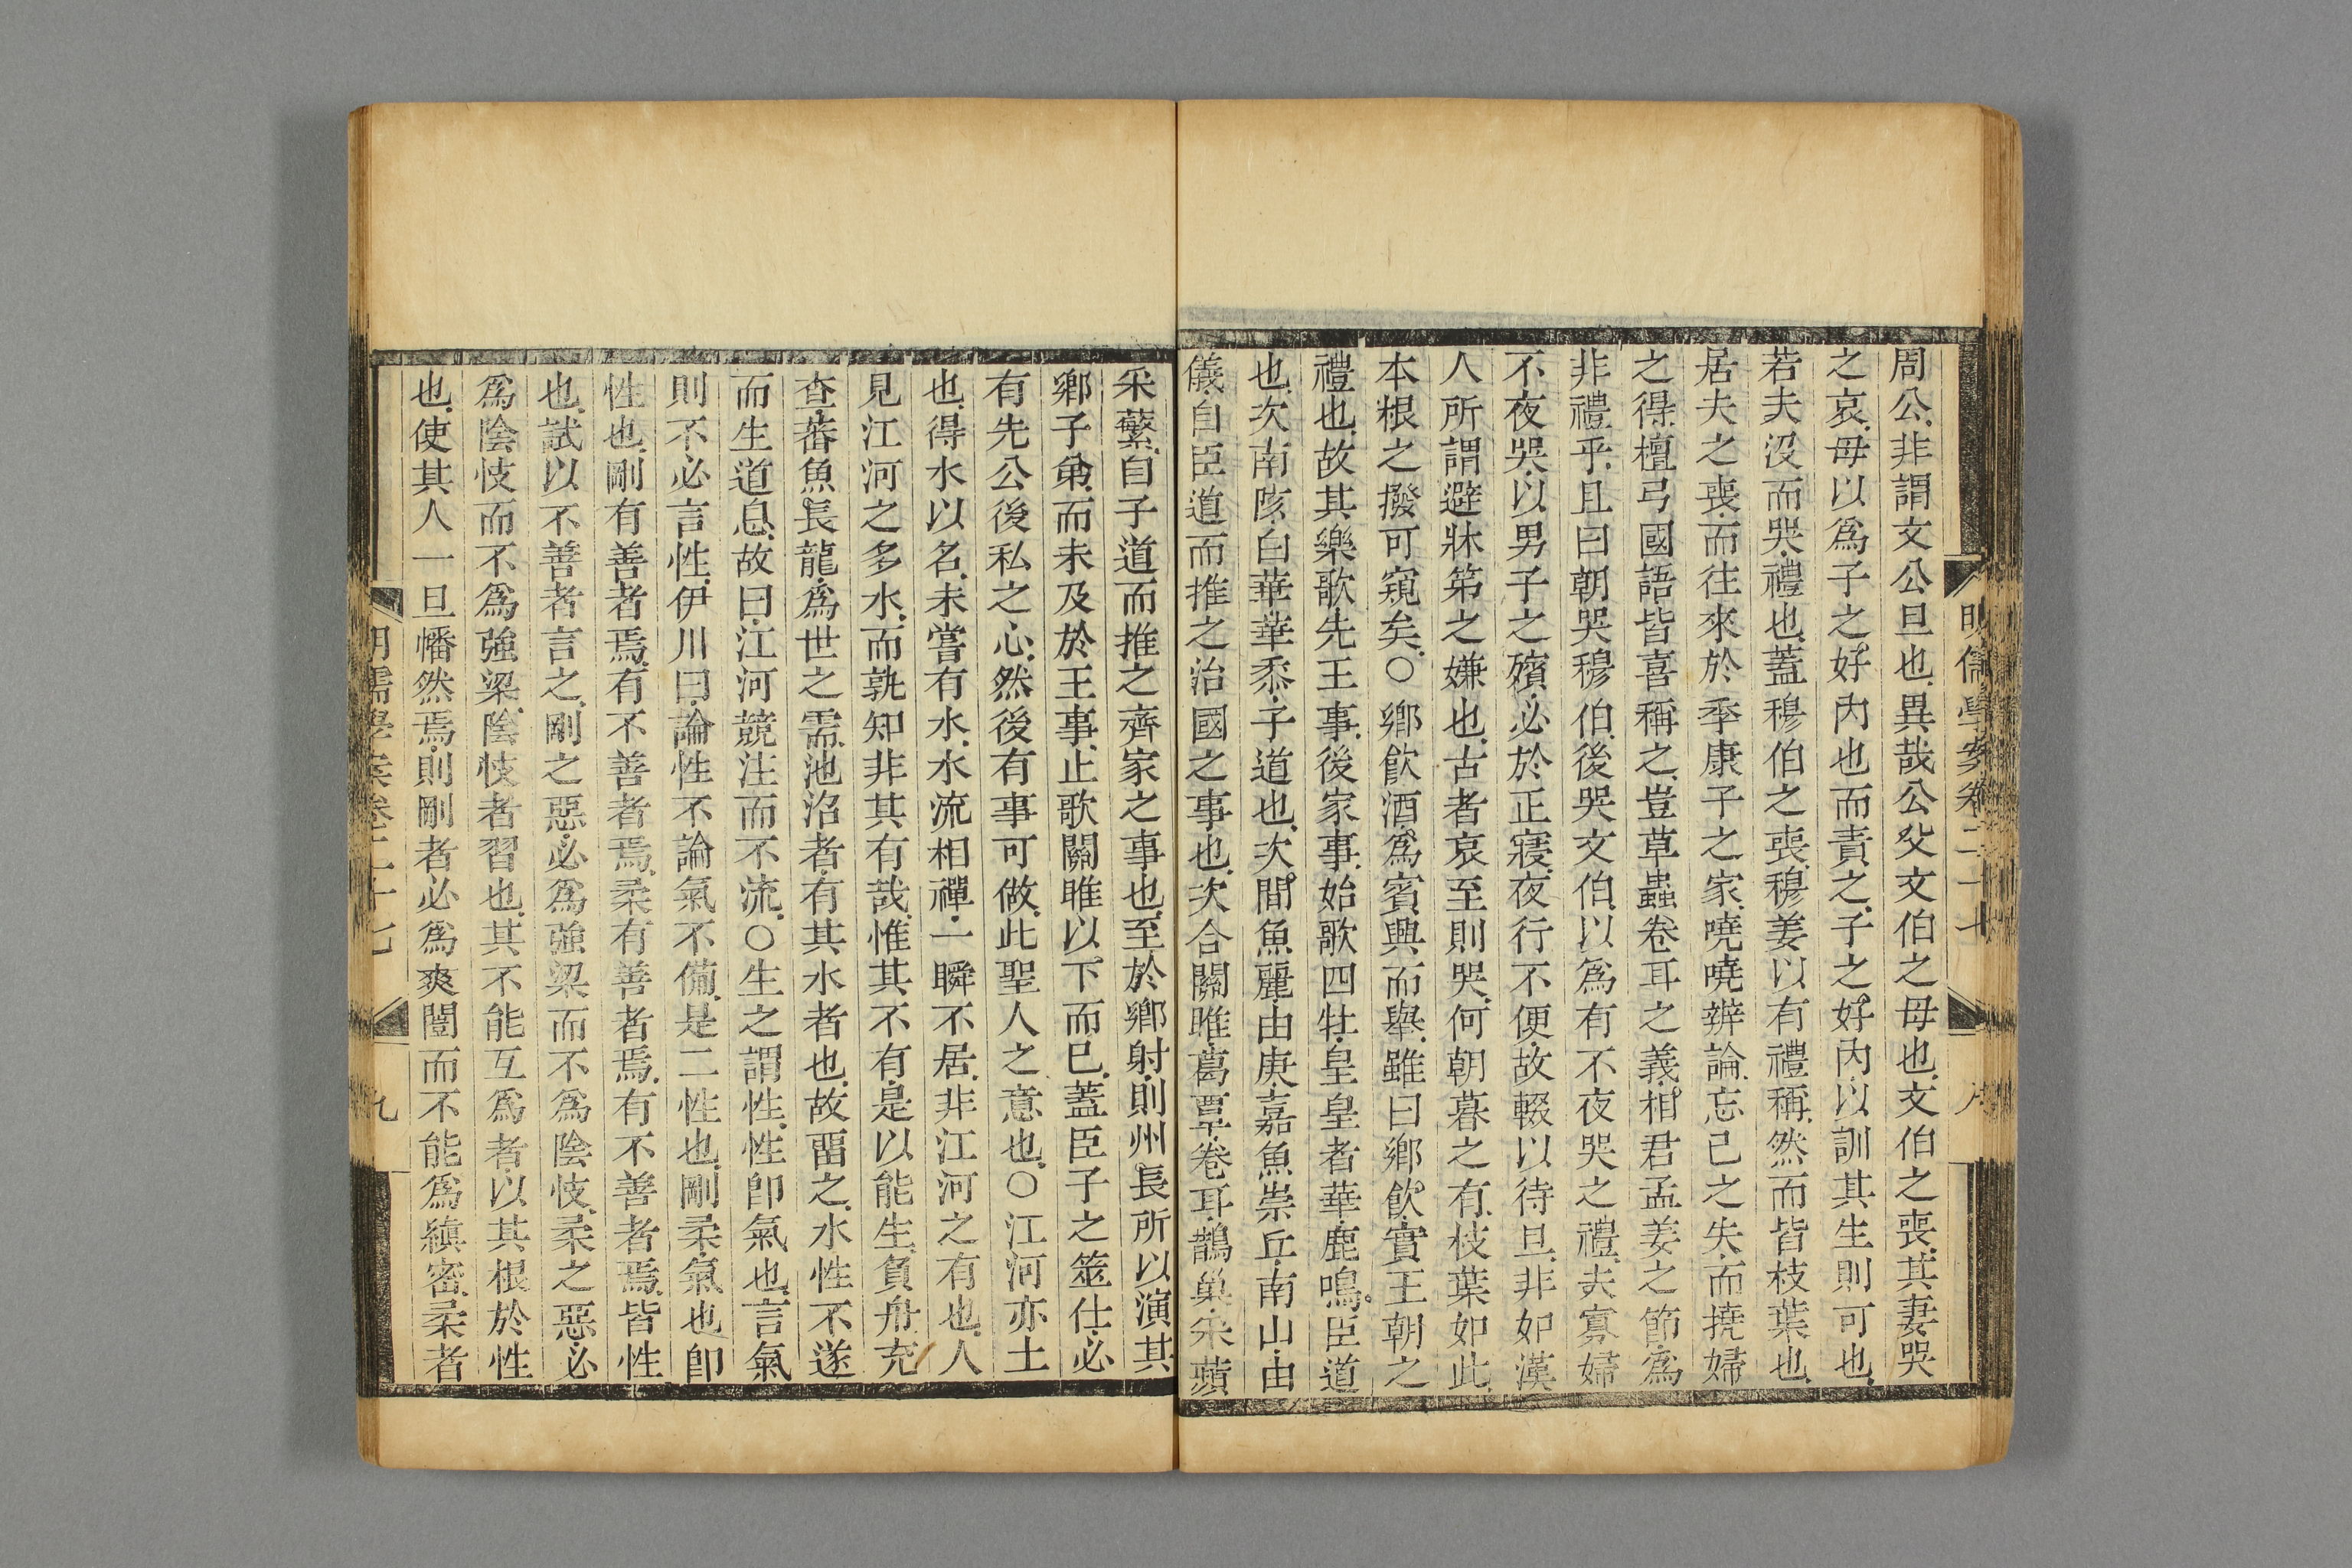 明儒學案卷二十七
八
周公、非謂文公旦也、異哉公父文伯之母也、文伯之喪、其妻哭
之哀、母以爲子之好內也而責之、子之好內、以訓其生則可也、
若夫沒而哭、禮也、蓋穆伯之喪、穆姜以有禮稱、然而皆枝葉也、
居夫之喪、而往來於季康子之家、嘵嘵辨論、忘己之失、而撓婦
之得、檀弓國語皆喜稱之、豈草蟲卷耳之義、相君孟姜之節、爲
非禮乎、且曰朝哭穆伯、後哭文伯、以爲有不夜哭之禮、夫寡婦
不夜哭、以男子之殯、必於正寢、夜行不便、故輟以待旦、非如漢
人所謂避牀第之嫌也、古者哀至則哭、何朝暮之有、枝葉如此、
本根之撥可窺矣、○鄉飮酒、爲賓興而舉、雖曰鄉飮、實王朝之
禮也、故其樂歌先王事、後家事、始歌四牡、皇皇者華鹿鳴、臣道
也、次南陔、白華華黍、子道也、次閒魚麗、由庚、嘉魚崇丘、南山、由
儀、自臣道而推之治國之事也、次合關雎、葛覃、卷耳、鵲巢、采蘋
采蘩、自子道而推之齊家之事也、至於鄉射、則州長所以演其
鄉子弟、而未及於王事、止歌關雎以下而已、蓋臣子之筮仕、必
有先公後私之心、然後有事可做、此聖人之意也、○江河亦土
也、得水以名、未嘗有水、水流相禪、一瞬不居、非江河之有也、人
見江河之多水、而孰知非其有哉、惟其不有、是以能生、負舟充
查、蕃魚長龍、爲世之需、池沼者、有其水者也、故畱之、水性不遂
而生道息、故曰、江河競注而不流、○生之謂性、性卽氣也、言氣
則不必言性、伊川曰、論性不論氣不備、是二性也、剛柔氣也卽
性也、剛有善者焉、有不善者焉、柔有善者焉、有不善者焉、皆性
也、試以不善者言之、剛之惡、必爲強梁而不爲陰忮、柔之惡、必
爲陰忮而不爲強梁、陰忮者習也、其不能互爲者、以其根於性
也、使其人一旦幡然焉、則剛者必爲爽闓而不能爲縝密、柔者
明儒學案卷二十七
九